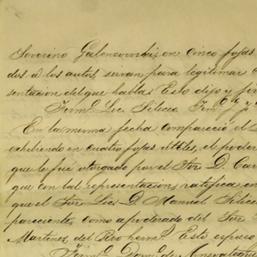 Severino Galen en cinco fojas
dos á los autos, sirvan para legitimar
sentacion del que habla. Esto dijo y fir
Firmo. Lic. Siliceo
En la misma fecha compareció el S
exhibiendo en cuatro fojas utiles, el poder
que le fué otorgado por el Sor D. Car
que con tal representacion, ratifica en
que el Sor Lic. D. Manuel Silice
pareciente como apoderado del Sor
Martinez del Rio herm. Esto espuso